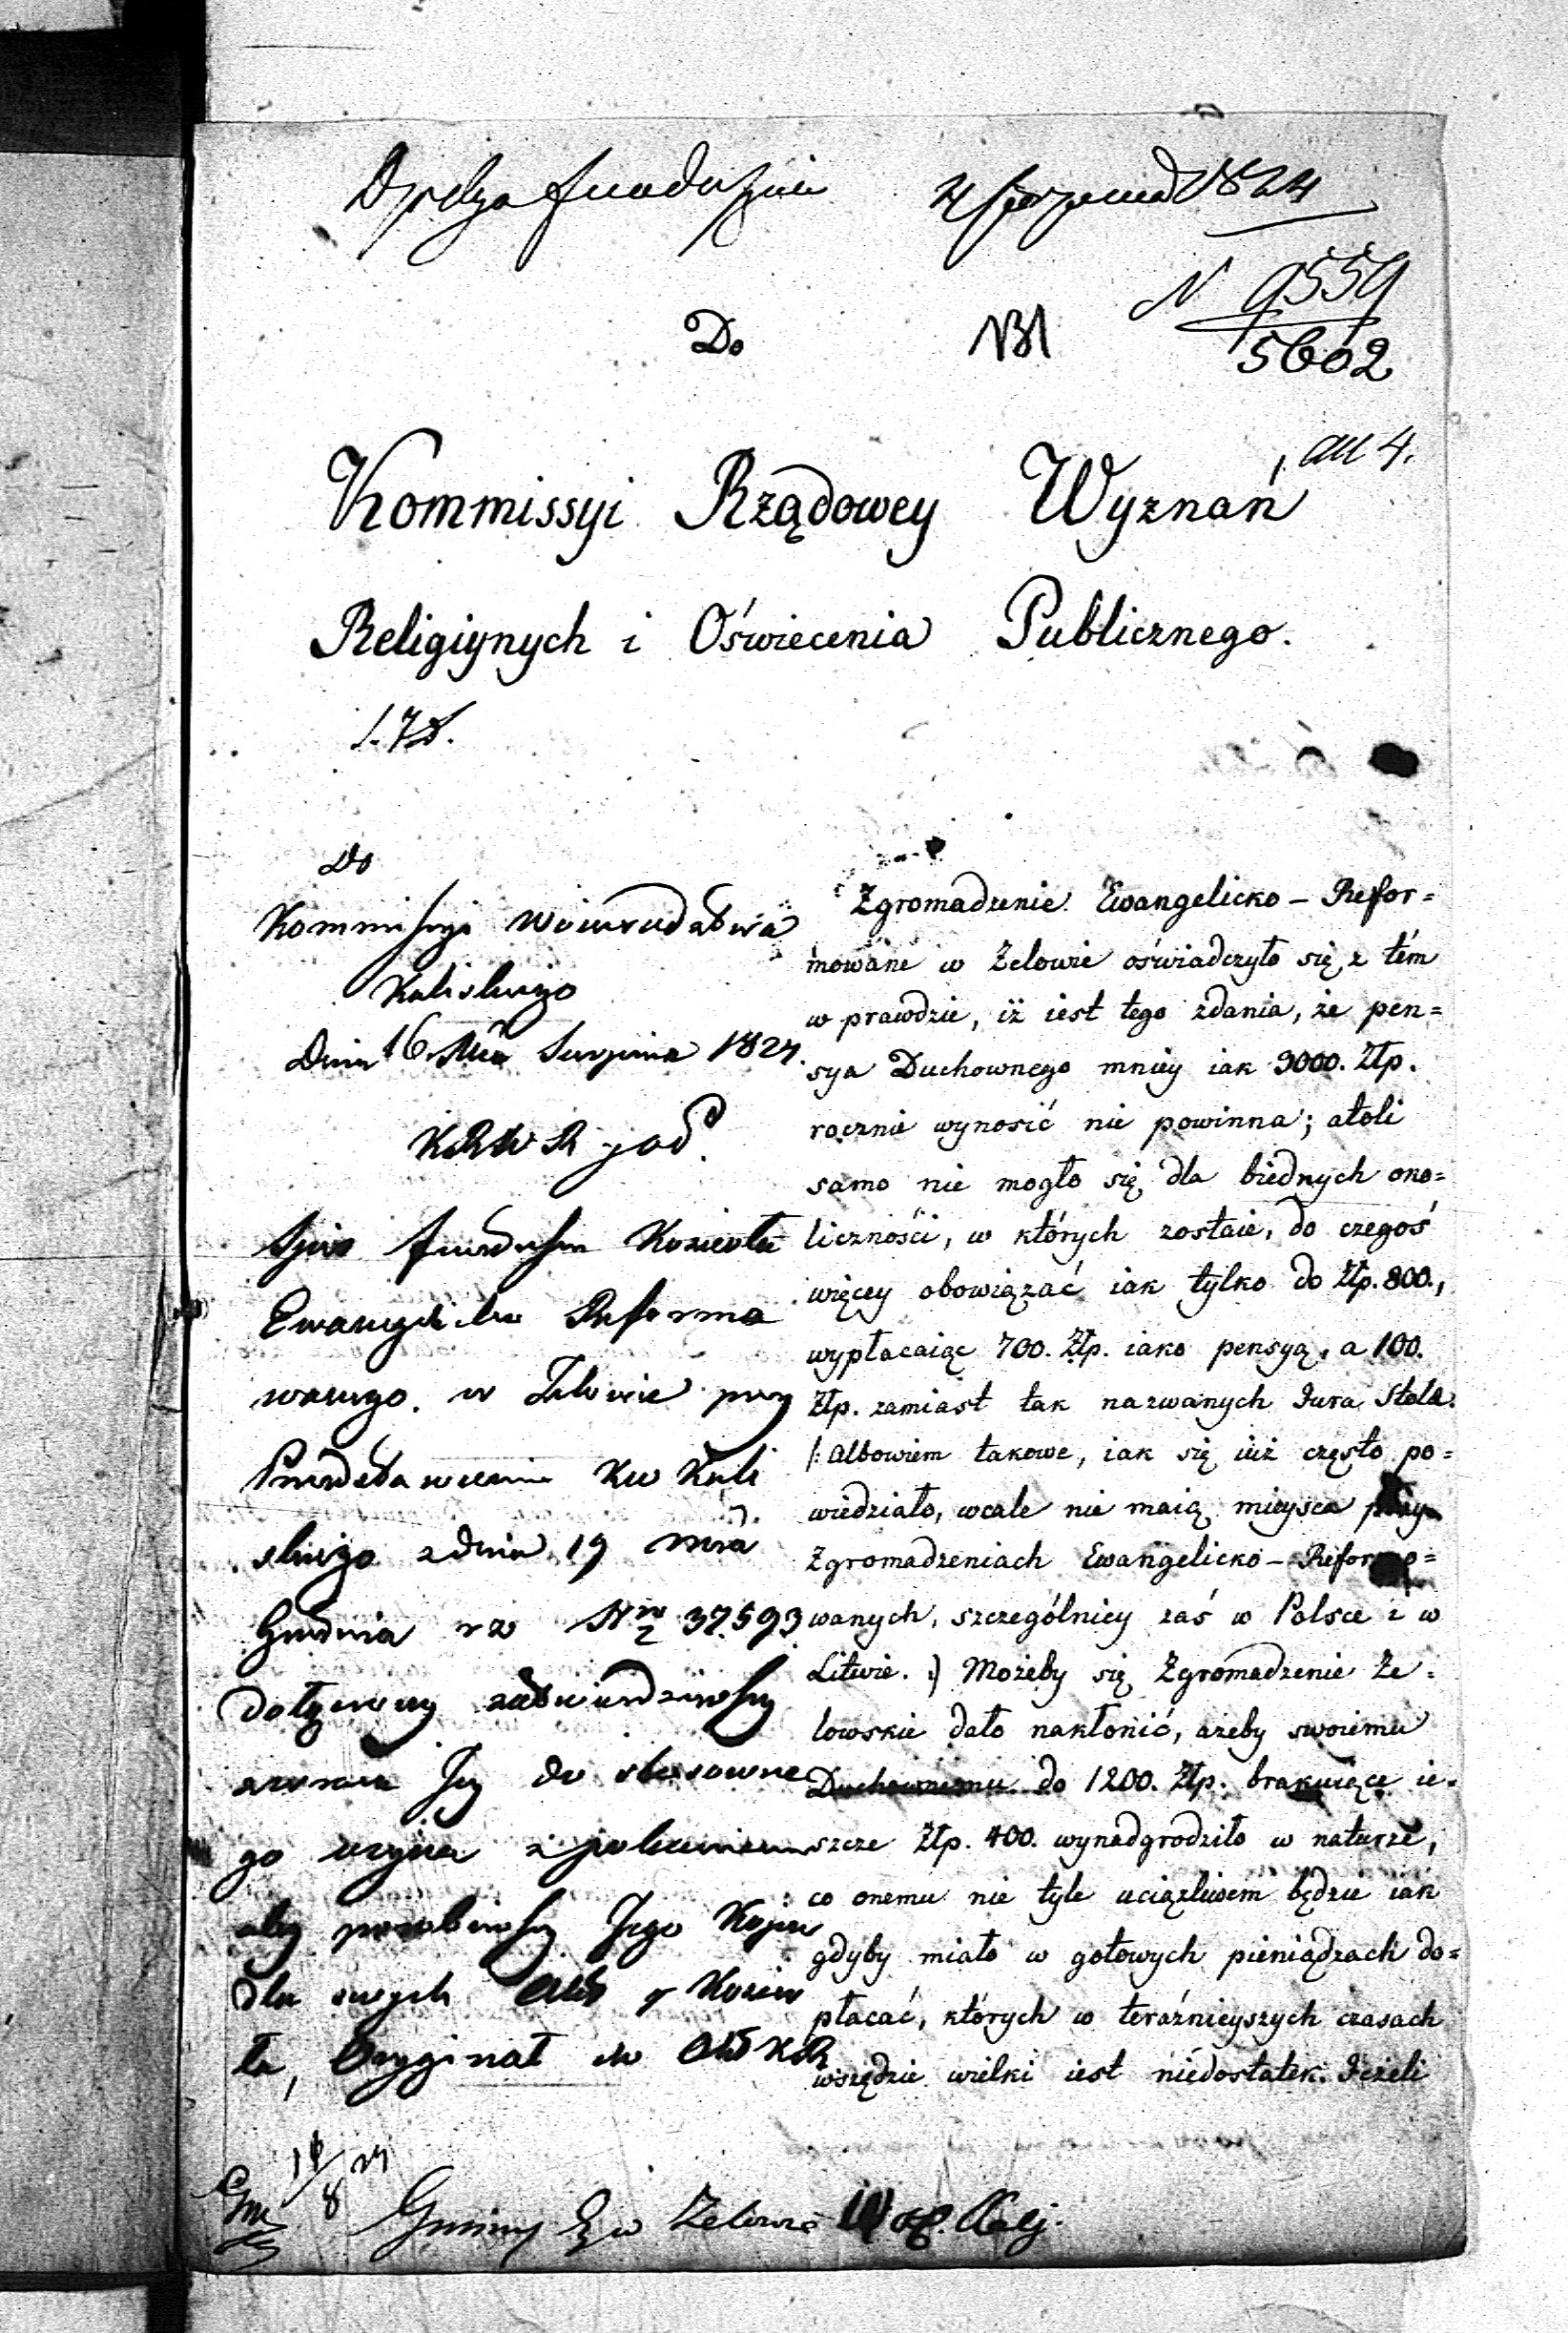 1824
N 9559
5602
Do
ad 4.
Kommissyi Rządowey Wyznań
Religiynych i Oświecenia Publicznego.
Do
Kommissyi Woiewództwa
Kaliskiego
Dnia 16 Mca Sierpnia 1824.
Spis funduszu Kościoła
Ewangelicko Reformo
wanego w Zelowie przy
Przedstawieniu KW Kali
skiego z dnia 19 Mca
Grudnia rz Nr 37.593
dołączony zatwierdziwszy
zwraca Jey do stosowne
go użycia z poleceniem
aby porobiwszy Jego Kopie
dla swych Akt y Kościo
ła, Oryginał do Akt
Zgromadzenie Ewangelicko – Refor=
mowane w Zelowie oświadczyło się z tém
w prawdzie, iż iest tego zdania, że pen=
sya Duchownego mniey iak 3000. Złp.
rocznie wynosić nie powinna; atoli
samo nie mogło się dla biednych oko=
liczności, w których zostaie, do czegoś
więcey obowiązać iak tylko do Złp. 800.,
wypłacaiąc 700. Złp. iako pensyą, a 100.
Złp. zamiast tak nazwanych Jura Stolæ.
/: albowiem takowe, iak się iuż często po=
wiedziało, wcale nie maią mieysca przy
Zgromadzeniach Ewangelicko – Reformo=
wanych, szczególniey zaś w Polsce i w
Litwie. :/ Możeby się Zgromadzenie Ze=
lowskie dało nakłonić, ażeby swoiemu
Duchownemu do 1200. Złp. brakuiące ie=
szcze Złp. 400. wynadgrodziło w naturze,
co onemu nie tyle uciążliwem będzie iak
gdyby miało w gotowych pieniądzach do=
płacać, których w teraźnieyszych czasach
wszędzie wielki iest niedostatek. Jeżeli
Gminy Ew Zelowie